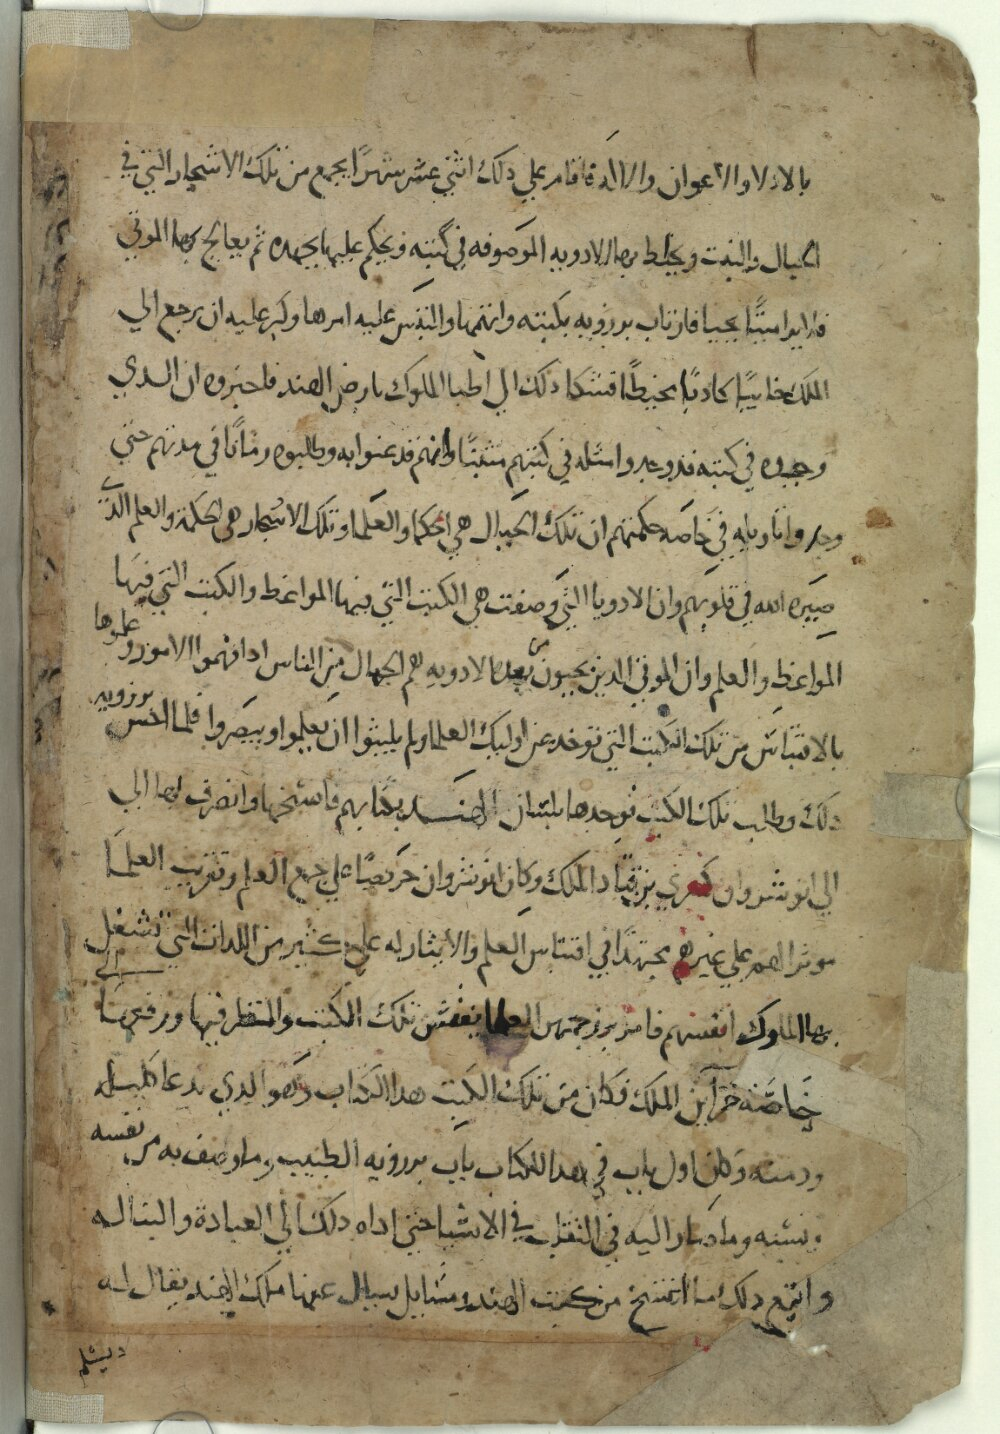 بالادلا والاعوان والالة فاقام علي ذلك اثني عشر شهرًا يجمع من تلك الاشجار التي في
الجبال والنبت ويخلط بها الادويه الموصوفه في كتبه ويحكم عليها بجهده ثم يعالج بها الموتي
فلا يرا ميتًا يحيا فارتاب برزويه بكتبه واتهمها والتبس عليه امرها وكبر عليه ان يرجع الي
الملك خايبًا كادبًا فشكا ذلك الي اطبا الملوك بارض الهند فاخبروه ان الدي
وجده في كتبه قد وجدوا مثله في كتبهم مثبتًا وانهم قد عنوا به وطلبوه زمانًا في مدتهم حتي
وجدوا تاويله في خاصه حكمتهم ان تلك الجبال هي الحكما والعلما وتلك الاشجار هي الحكمة والعلم الدي
صيره الله في قلوبهم وان الادويا التي وصفت هي الكتب التي فيها المواعظ والكتب التي فيها
المواعظ والعلم وان الموتي الدين يحيون بهده الادويه هم الجهال من الناس ادا فهموا الامور وعلموها
بالاقتباس من تلك الكتب التي توخد عن اوليك العلما ولم يلبثوا ان يعلموا ويبصروا فلما احس برزويه
دلك وطلب تلك الكتب فوجدها بلسان الهند بكتابهم فانتسخها وانصرف بها الي
الي انوشروان كسري بن قباد الملك وكان انوشروان حريصًا علي جمع العلم وتقريب العلما
موثرا لهم علي غيرهم مجتهدًا في اقتباس العلم والايثار له علي كثير من اللدات التي تشغل
بها الملوك انفسهم فامر بزرجمهر العلما بتفتيش تلك الكتب والنظر فيها ورفعها الي
خاصة خزاين الملك فكان من تلك الكتب هدا الكتاب وهو الدي يدعا كليله
ودمنه وكان اول باب في هدا الكتاب باب برزويه الطبيب وما وصف به من نفسه
ونسبه وما صار اليه في التقلب في الاشيا حتي اداه دلك الي العبادة والتاله
واتبع دلك ما انتسخ من كتب الهند ومسايل سال عنها ملك الهند يقال له
دبشلم